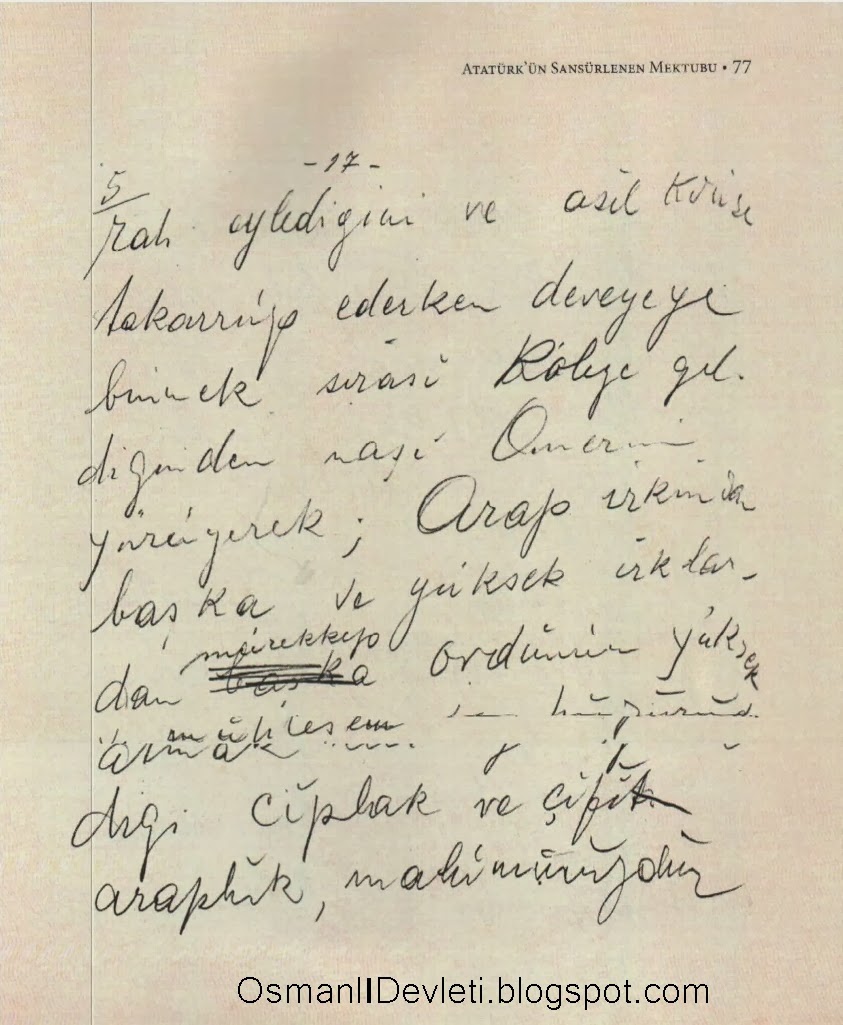 ATATÜRK'ÜN SANSÜRLENEN MEKTUBU • 77
- 17 -
5
rah eylediğini ve asil Kudüse
takarrüp ederken deveyeye
binmek sırası Köleye gel-
diğinden naşi Ömerin
yürüyerek ; Arap ırkından
başka ve yüksek ırklar-
mürekkep
dan başka ordunun yüksek
muhteşem huzurund
digi çıplak ve çıfıt
araplık, malûmunuzdur
OsmanlIDevleti.blogspot.com